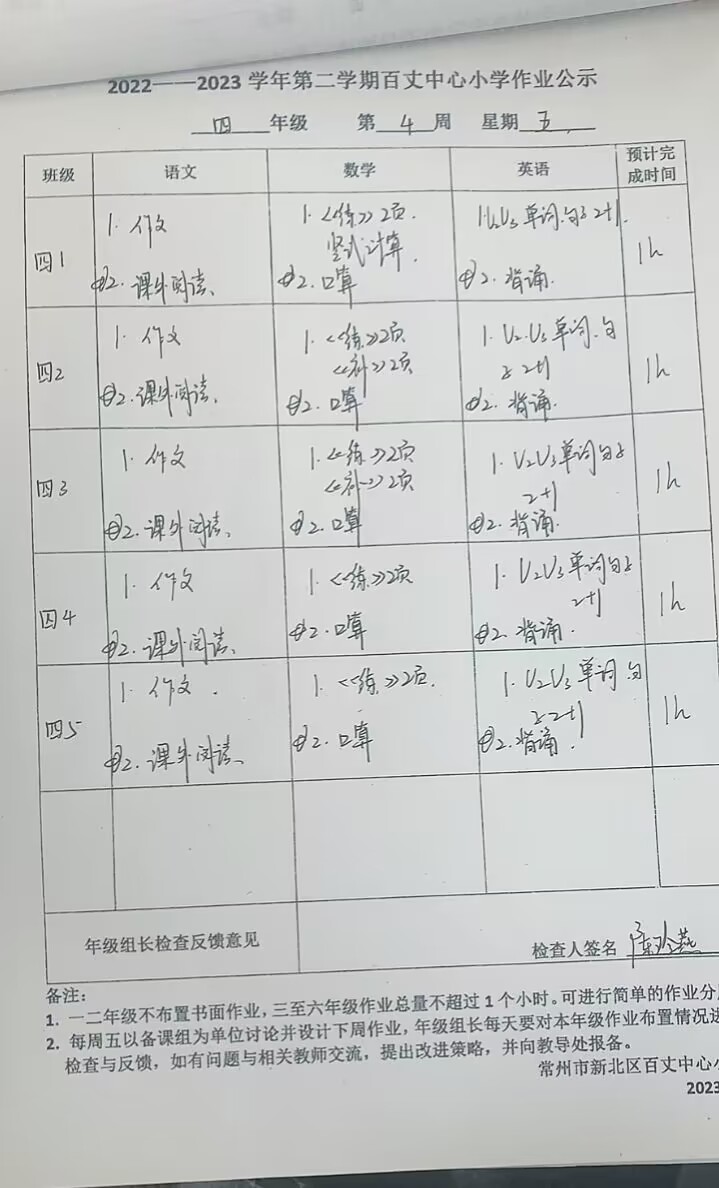 2022——2023 学年第二学期百丈中心小学作业公示
四 年级 第 4 周 星期 五
班级 语文 数学 英语 预计完成时间
四1
1. 作文
2. 课外阅读、
1. 《练》2页.
竖式计算.
2. 口算
1. U2U3 单词.句子 2+1.
2. 背诵.
1h
四2
1. 作文
2. 课外阅读、
1. 《练》2页
《补》2页
2. 口算
1. U2.U3 单词.句
子 2+1
2. 背诵.
1h
四3
1. 作文
2. 课外阅读、
1. 《练》2页
《补》2页
2. 口算
1. U2U3 单词句子
2+1
2. 背诵.
1h
四4
1. 作文
2. 课外阅读、
1. 《练》2页
2. 口算
1. U2U3 单词句子
2+1
2. 背诵.
1h
四5
1. 作文.
2. 课外阅读、
1. 《练》2页.
2. 口算
1. U2U3 单词 句
子 2+1
2. 背诵.
1h
年级组长检查反馈意见
检查人签名
备注:
1. 一二年级不布置书面作业,三至六年级作业总量不超过 1 个小时。可进行简单的作业分
2. 每周五以备课组为单位讨论并设计下周作业,年级组长每天要对本年级作业布置情况
检查与反馈,如有问题与相关教师交流,提出改进策略,并向教导处报备。
常州市新北区百丈中心
2023